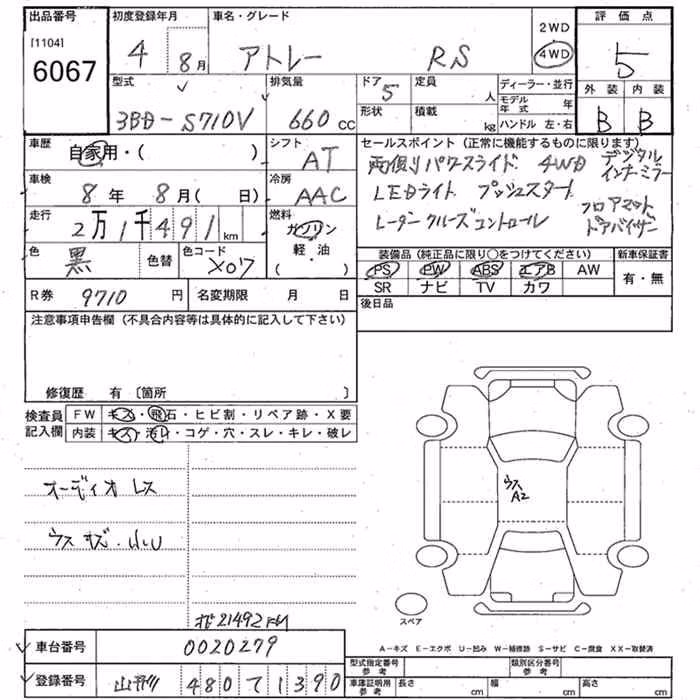 出品番号
[1104]
6067
初度登録年月
4 8月
車名・グレード
アトレー RS
2WD
4WD
評価点
5
外装 内装
B B
型式
3BD-S710V
排気量
660 cc
ドア 5
形状
定員 人
積載 kg
ディーラー・並行
モデル年式 年
ハンドル 左・右
車歴
自家用・( )
シフト
AT
車検
8年 8月( 日)
冷房
AAC
走行
2万1千491km
燃料
ガソリン
軽・油
( )
色
黒
色替
色コード
X07
セールスポイント (正常に機能するものに限ります)
両側パワースライド 4WD デジタルインナーミラー
LEDライト プッシュスタート フロアマット
レーダークルーズコントロール ドアバイザー
装備品(純正品に限り○をつけてください)
PS PW ABS エアB AW
SR ナビ TV カワ
新車保証書
有・無
R券 9710 円
名変期限 月 日
後日品
注意事項申告欄(不具合内容等は具体的に記入して下さい)
修復歴 有 〔箇所 〕
検査員記入欄
FW キズ・飛石・ヒビ割・リペア跡・X要
内装 キズ・汚れ・コゲ・穴・スレ・キレ・破レ
オーディオレス
ウスキズ・
ウス
A2
スペア
21492km
A-キズ E-エクボ U-凹み W-補修跡 S-サビ C-腐食 XX-取替済
車台番号
0020279
登録番号
480 1390
型式指定番号
参考
類別区分番号
参考
車庫証明用
参考
長さ cm
幅 cm
高さ cm